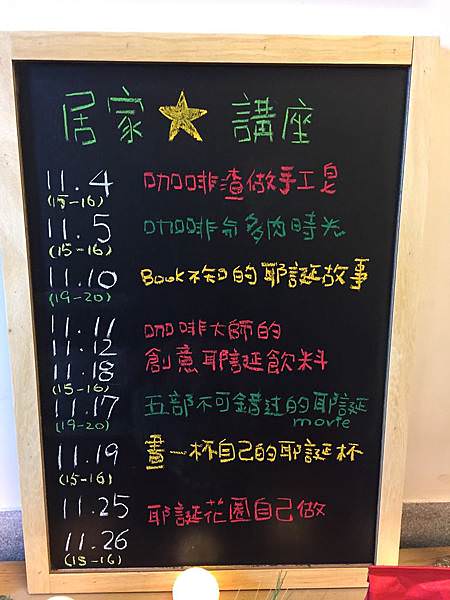 居家★講座
11.4 咖啡渣做手工皂
(15-16)
11.5 咖啡与多肉時光
(15-16)
11.10 Book不知的耶誕故事
(19-20)
11.11 咖啡大師的
11.12 創意耶誕飲料
11.18
(15-16)
11.17 五部不可錯过的耶誕
(19-20) movie
11.19 畫一杯自己的耶誕杯
(15-16)
11.25 耶誕花圈自己做
11.26
(15-16)